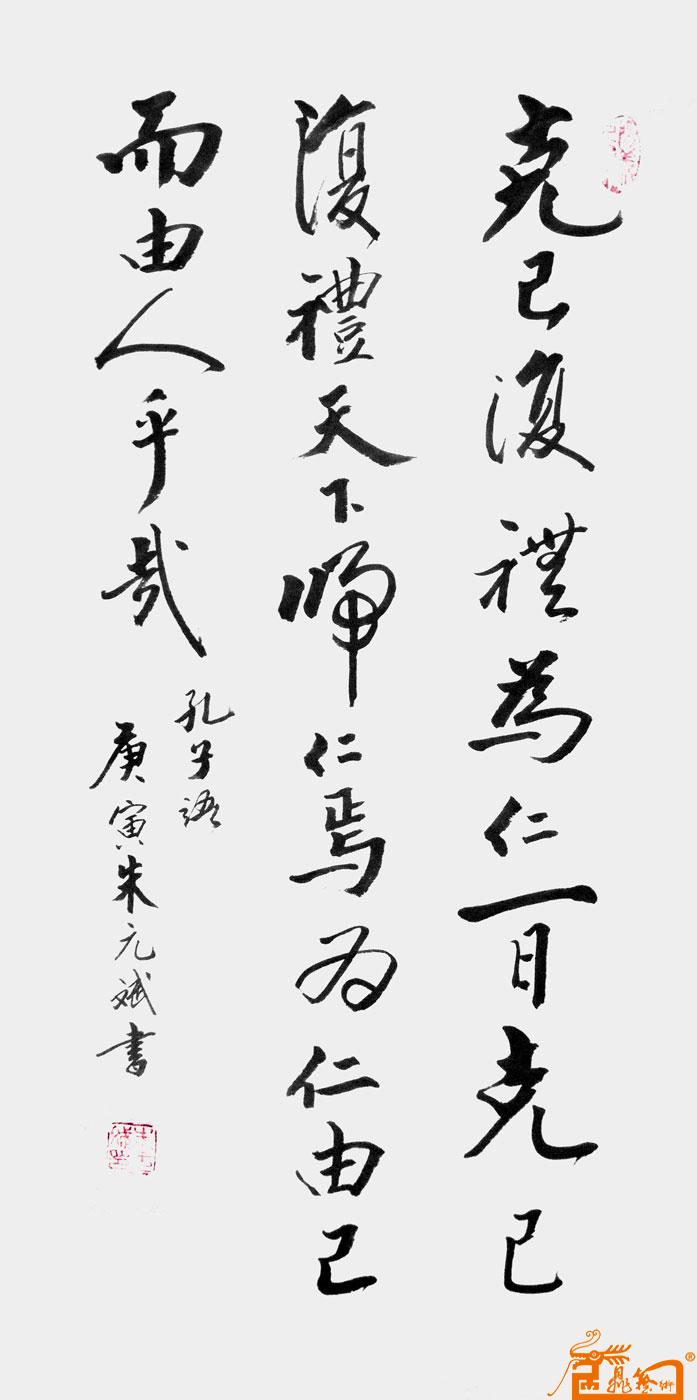 克己復禮為仁一日克己
復禮天下歸仁焉為仁由己
而由人乎哉
孔子語
庚寅朱元斌書